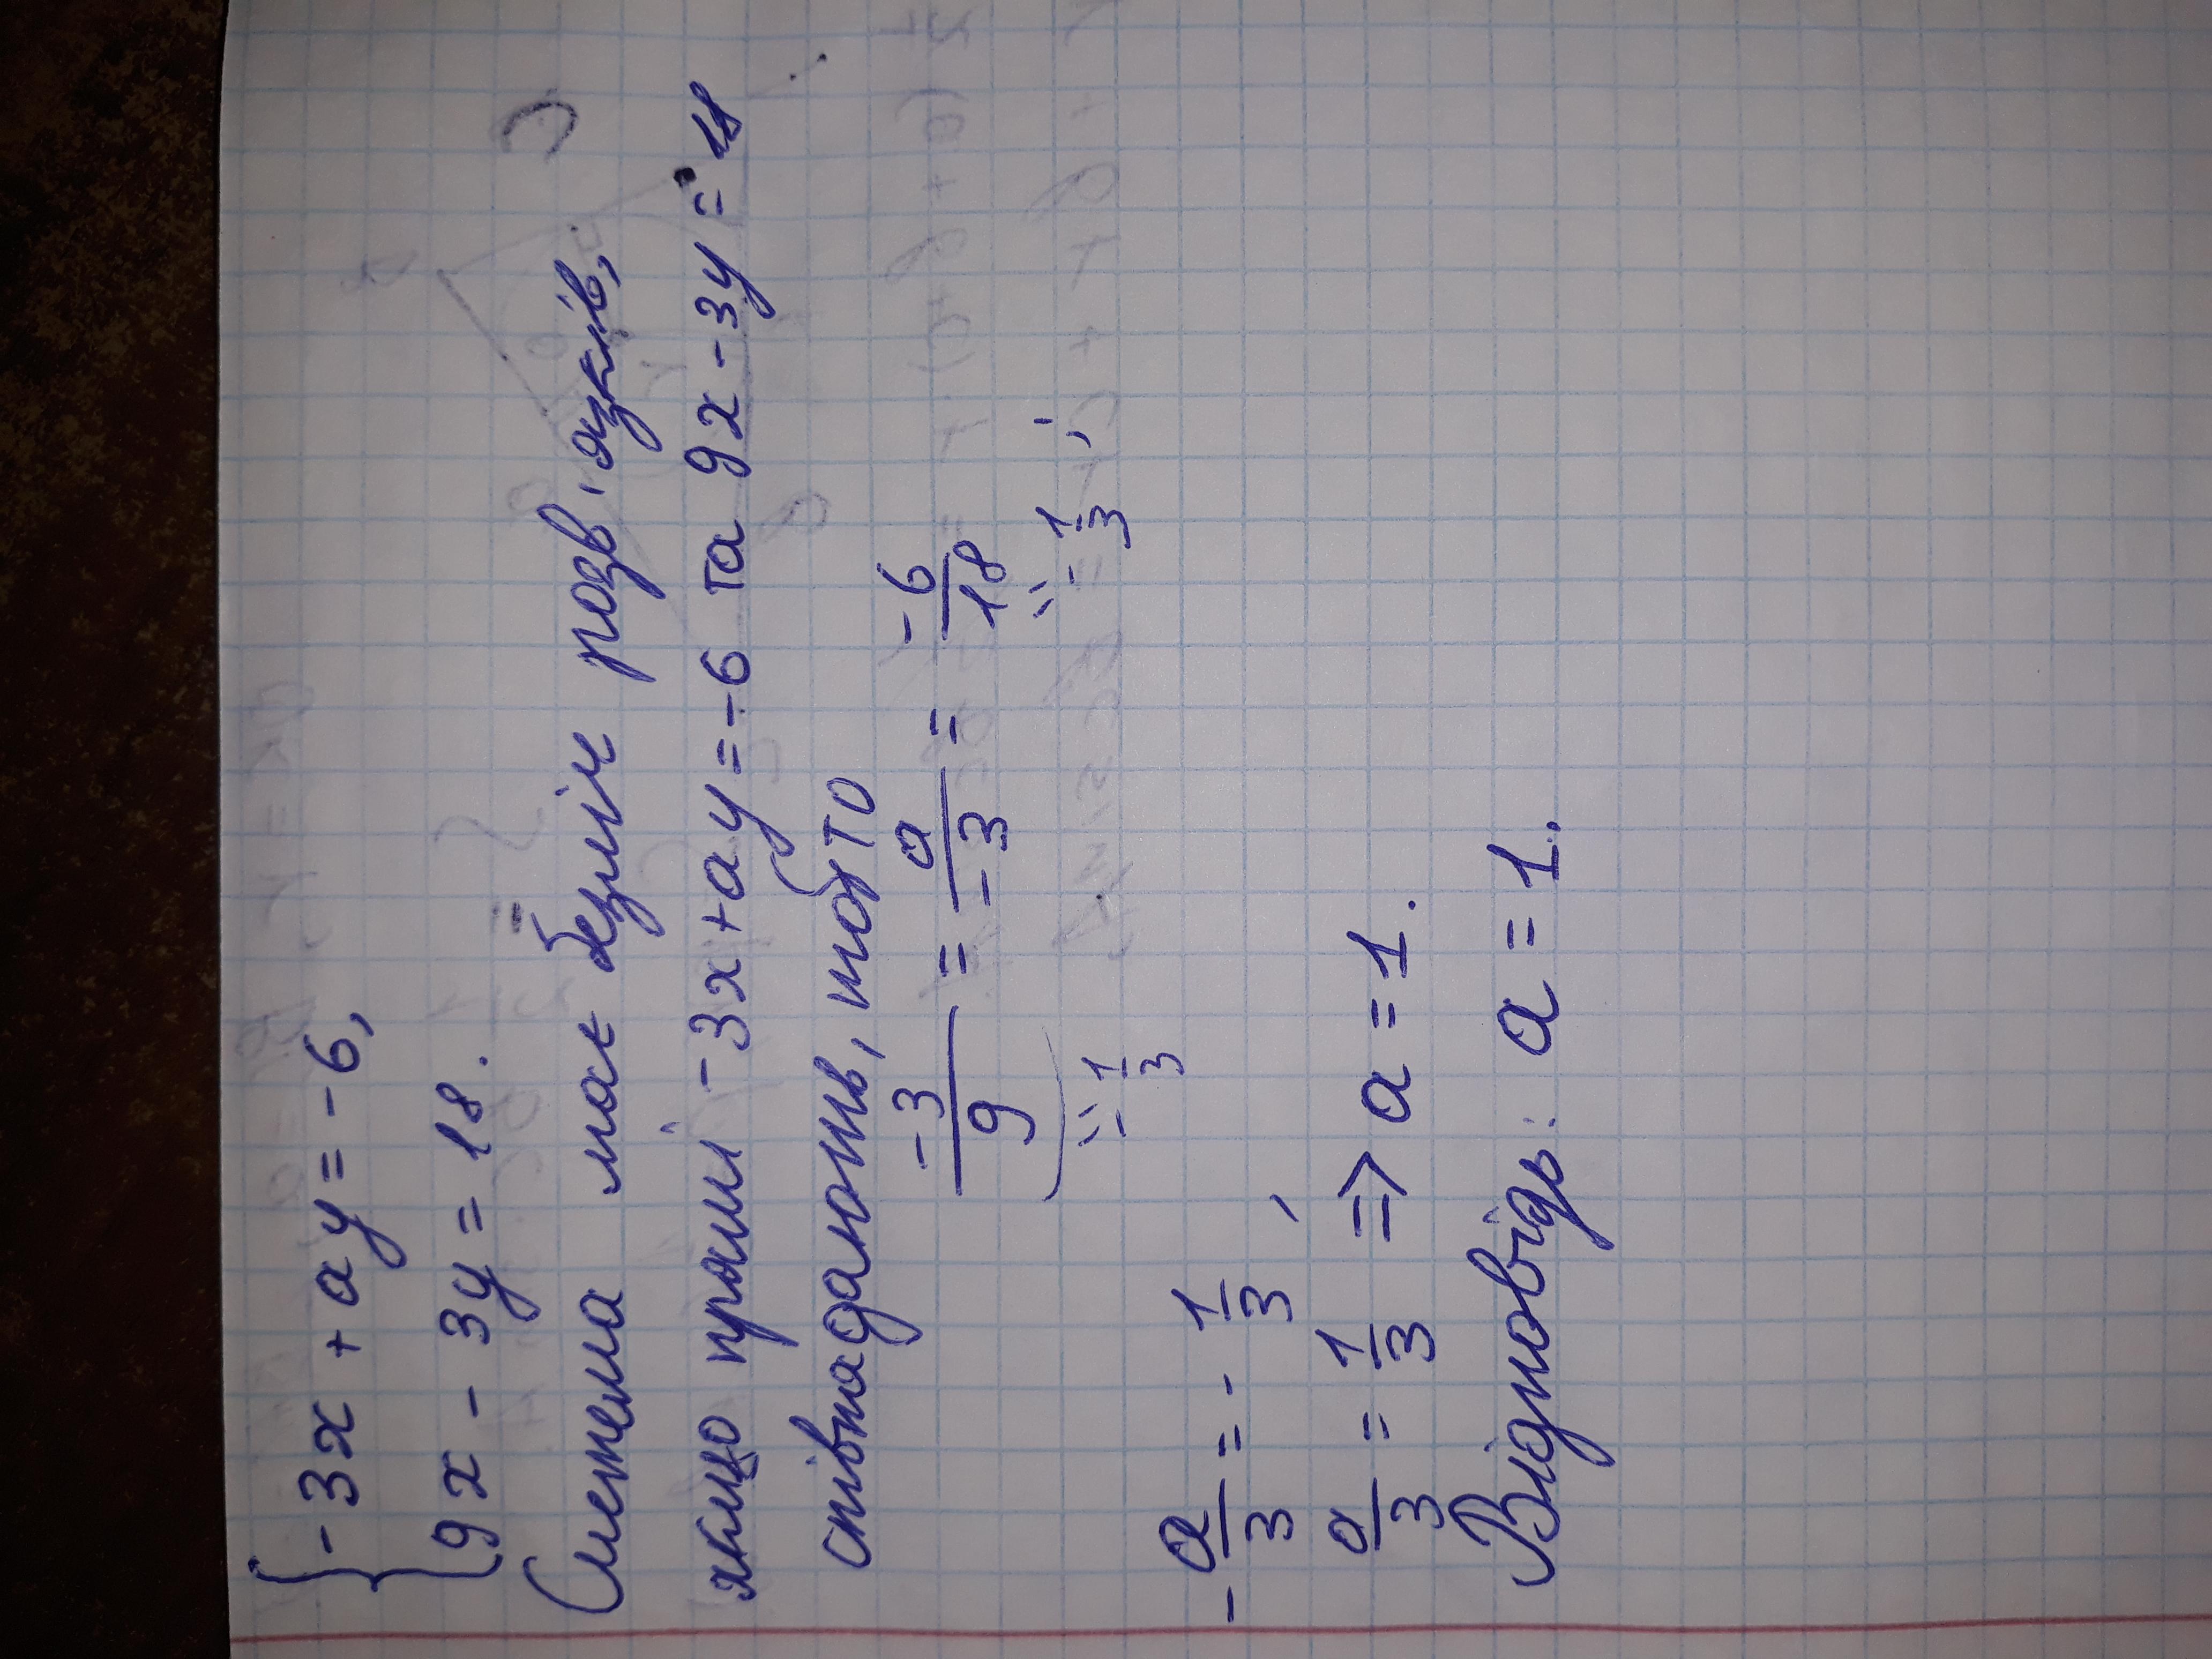 { -3x + ay = -6,
9x - 3y = 18.
Система має безліч розв'язків,
якщо прямі -3x+ay=-6 та 9x-3y=18
співпадають, тобто
-3/9 = a/-3 = -6/18
= -1/3 = -1/3 ;
-a/3 = -1/3 ,
a/3 = 1/3 => a=1.
Відповідь: a=1.